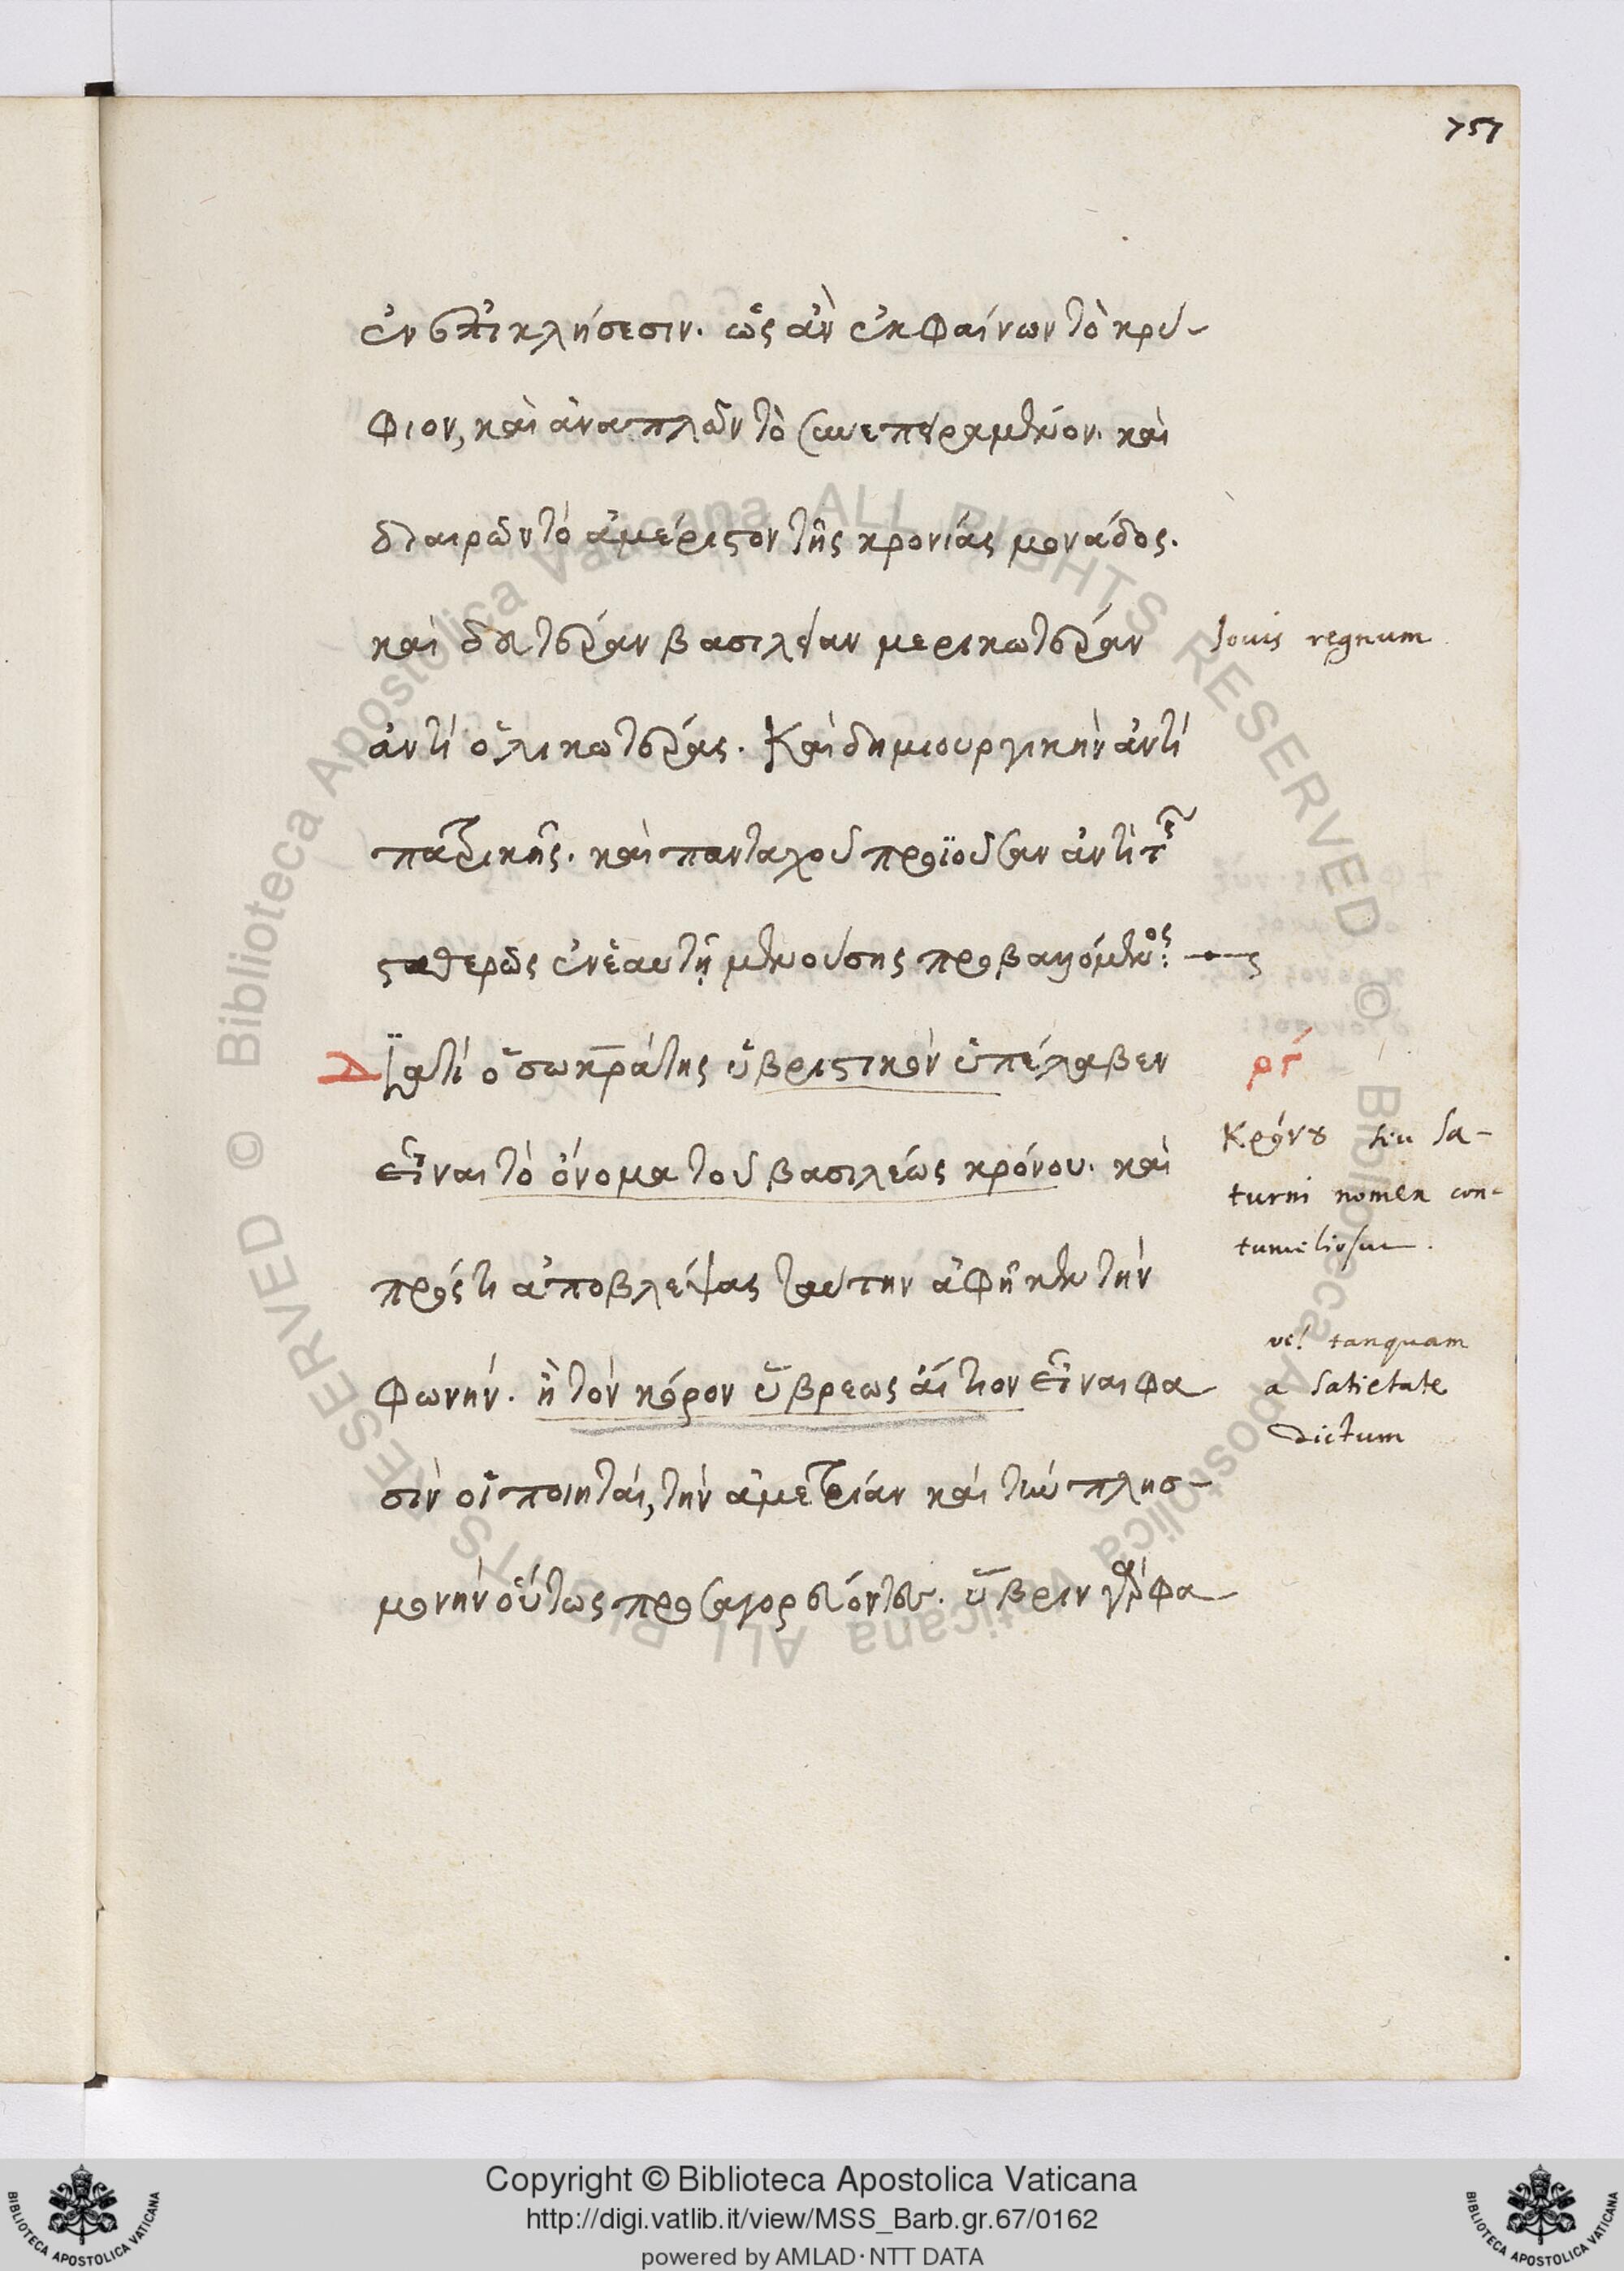 757
ἐν ἐπικλήσεσιν. ὡς ἂν ἐκφαίνων τὸ κρύ-
φιον, καὶ ἀναπλῶν τὸ συνεπτυγμένον. καὶ
διαιρῶν τὸ ἀμέριστον τῆς κρονίας μονάδος.
καὶ δευτέραν βασιλείαν μερικωτέραν
Iouis regnum
ἀντὶ ὁλικωτέρας. Καὶ δημιουργικὴν ἀντὶ
πατρικῆς. καὶ πανταχοῦ προϊοῦσαν ἀντὶ τῆς
σταθερῶς ἐν ἑαυτῇ μενούσης προβαλλόμενος:
Διατί ὁ σωκράτης ὑβριστικὸν ὑπέλαβεν
ρϛ
εἶναι τὸ ὄνομα τοῦ βασιλέως κρόνου. καὶ
Κρόνου seu Sa-
turni nomen con-
tumeliosum.
πρός τι ἀποβλέψας ταύτην ἀφῆκεν τὴν
φωνήν. ἢ τὸν κόρον ὕβρεως αἴτιον εἶναι φα
vel tanquam
a Satietate
dictum
σὶν οἱ ποιηταί, τὴν ἀμετρίαν καὶ τὴν πλησ-
μονὴν οὕτως προσαγορεύοντες. ὕβριν γάρ φα
© Biblioteca Apostolica Vaticana ALL RIGHTS RESERVED
© Biblioteca Apostolica Vaticana ALL RIGHTS RESERVED
Copyright © Biblioteca Apostolica Vaticana
http://digi.vatlib.it/view/MSS_Barb.gr.67/0162
powered by AMLAD · NTT DATA
BIBLIOTECA APOSTOLICA VATICANA
BIBLIOTECA APOSTOLICA VATICANA